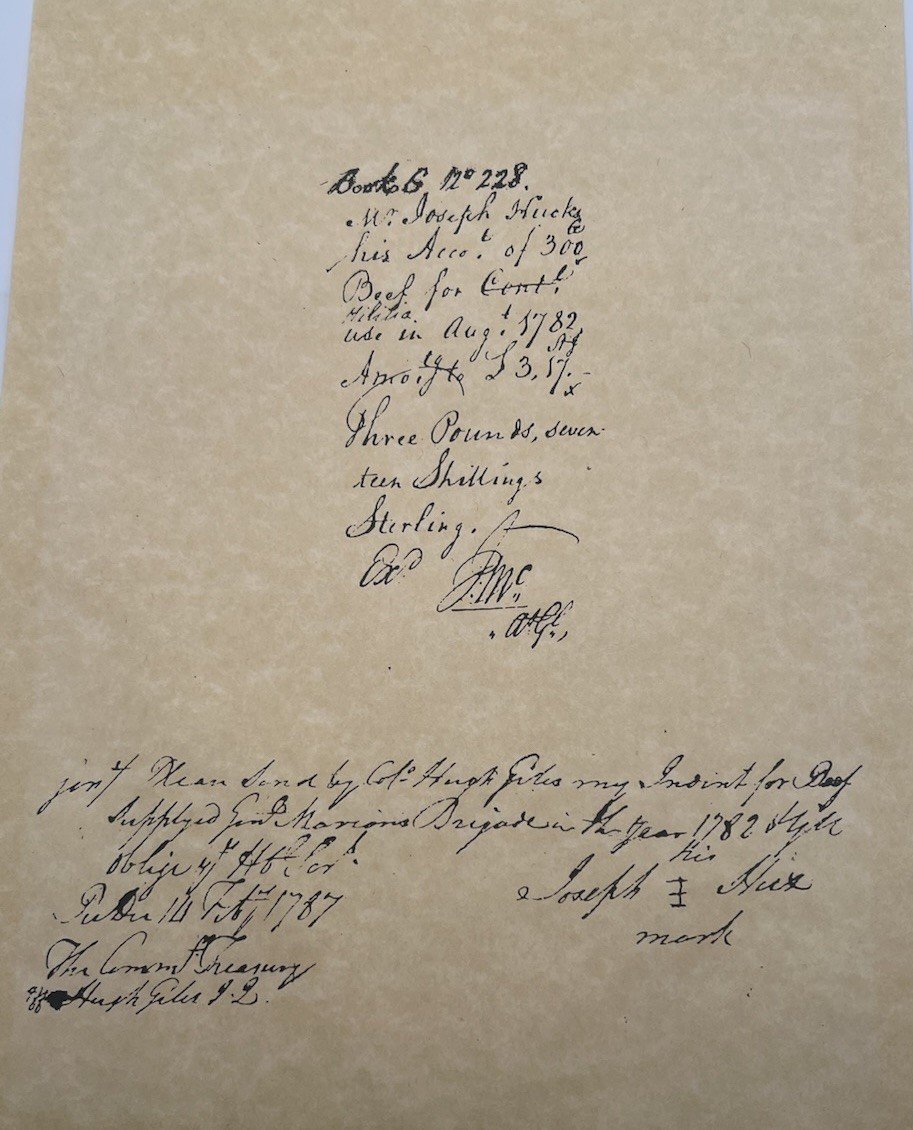 Book G No 228.
Mr. Joseph Hucks
his Acco.t of 300 lb
Beef for Cont.l
Militia
use in Aug.t 1782
Stg
Amo.tg to £3,17.-
Three Pounds, seven-
teen Shillings
Sterling.
Ex.d J.Mc
Jent Pleas Send by Colo Hugh Giles my Indint for Beef
Supplyed Genl Marions Brigade in the year 1782 & you'l
Oblige yr Hble Serv
his
Joseph I Hux
mark
14 Feby 1787
The Commrs Treasury
Hugh Giles J.Q.